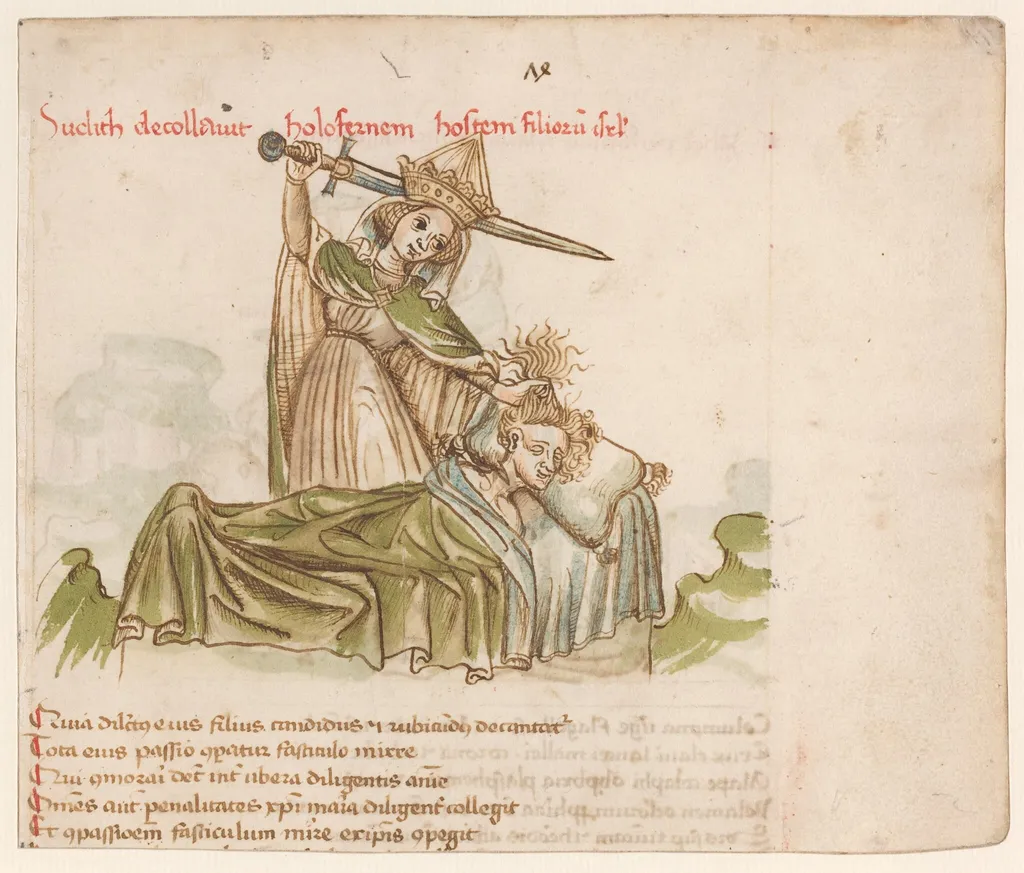 Iudith decollauit holofernem hostem filiorū isrl'
Quia dilctꝰ eius filius candidus ⁊ rubicūdꝰ decantatᷣ
Tota eius passio ꝯpatur fasciculo mirre
Qui ꝯmorai dec̄t int̄ ubera diligentis anīe
Om̄es aut̄ penalitates xp̄i maīa diligent̄ collegit
Et ꝯpassioēm fasciculum mirre exip̄is ꝯpegit